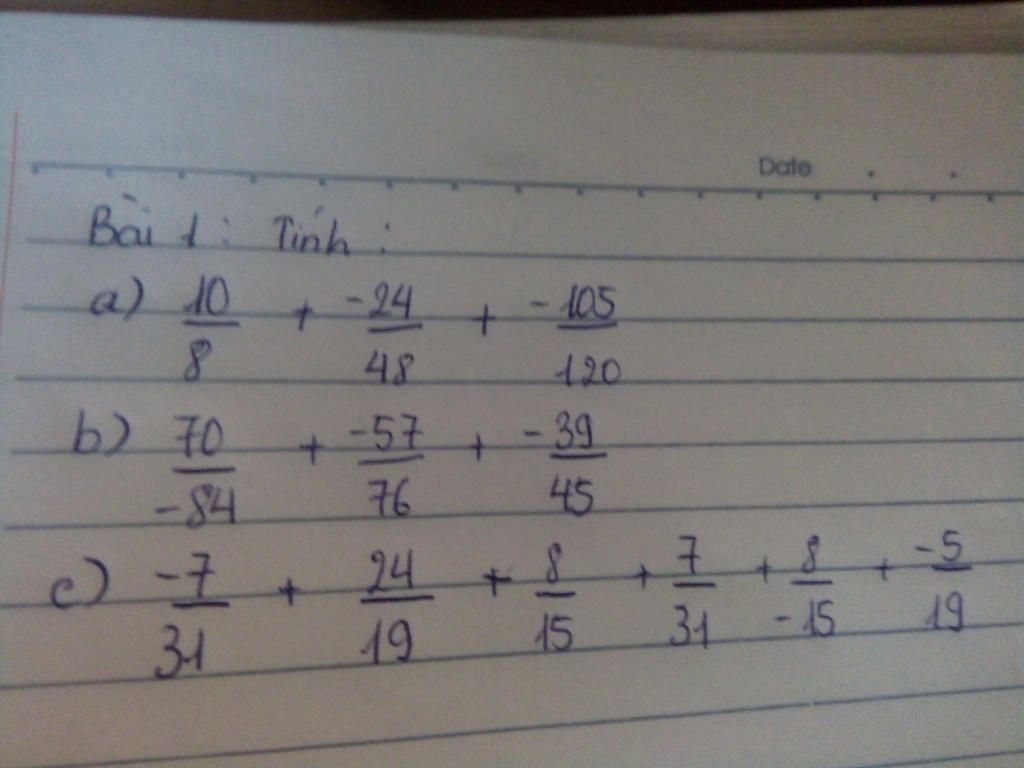 Date . .
Bài 1 : Tính :
a) 10/8 + -24/48 + -105/120
b) 70/-84 + -57/76 + -39/45
c) -7/31 + 24/19 + 8/15 + 7/31 + 8/-15 + -5/19